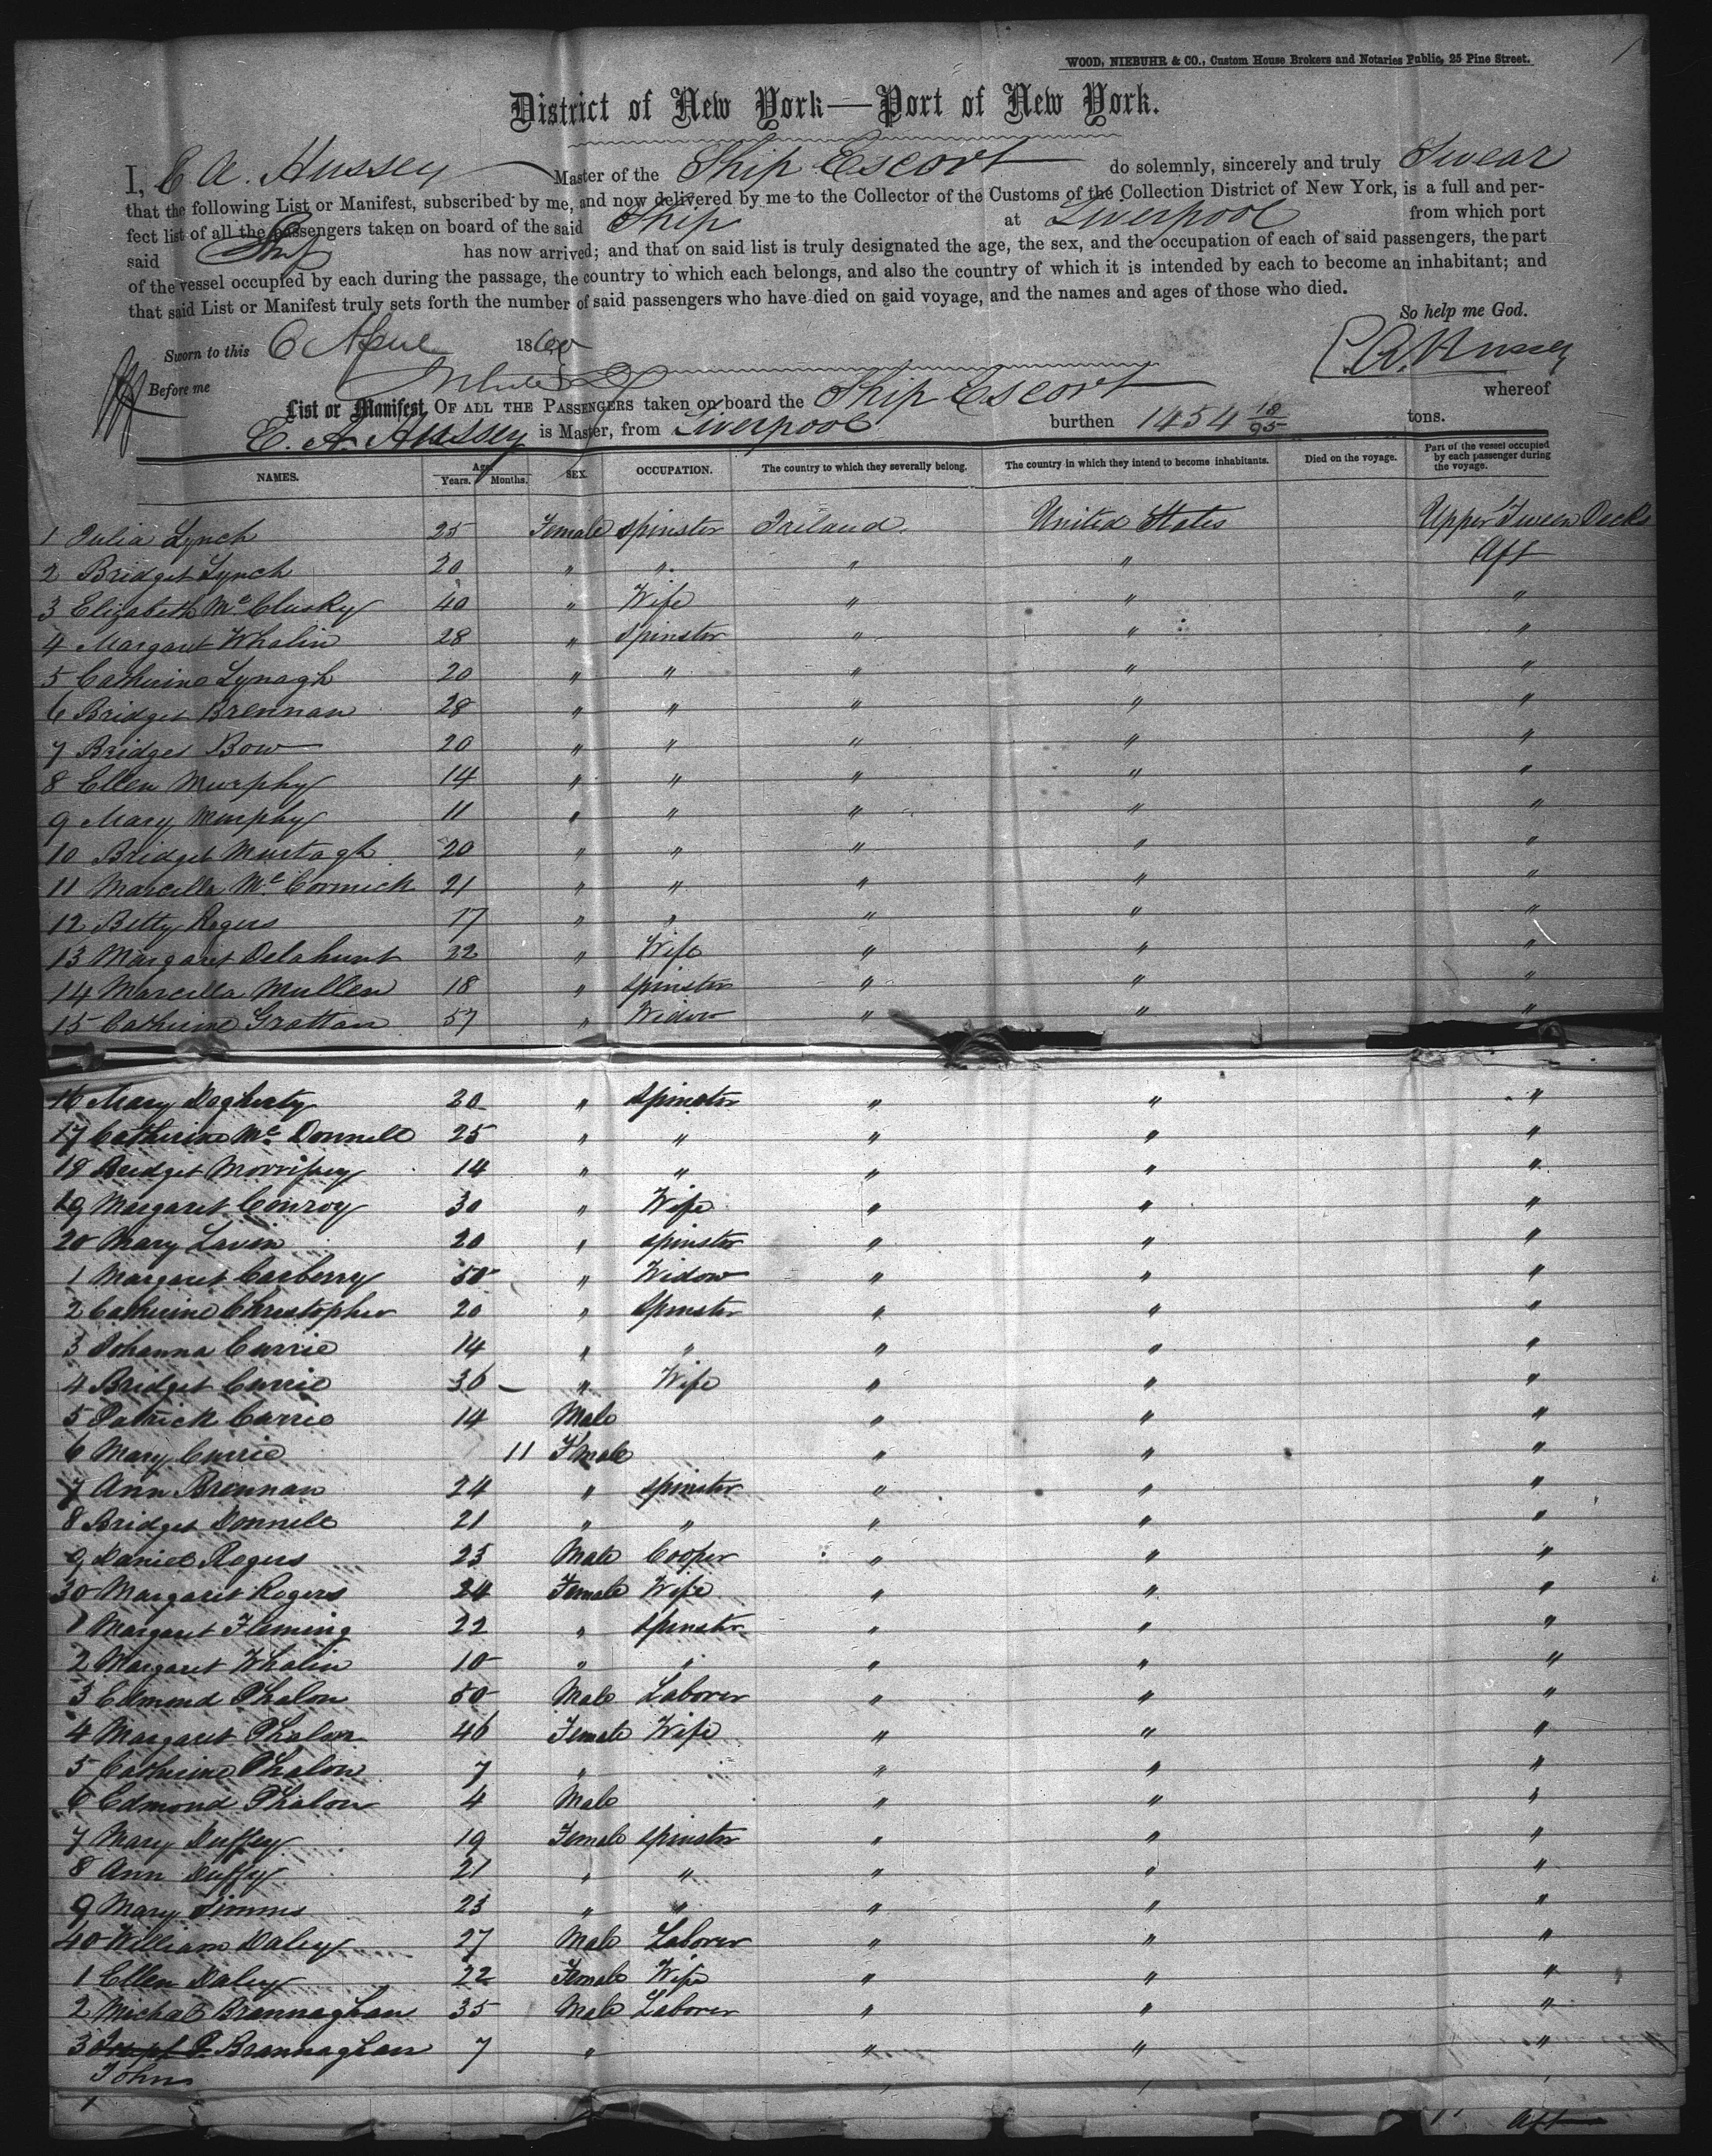 WOOD, NIEBUHR & CO., Custom House Brokers and Notaries Public, 25 Pine Street.
District of New York—Port of New York.
I, E A. Hussey Master of the Ship Escort do solemnly, sincerely and truly Swear
that the following List or Manifest, subscribed by me, and now delivered by me to the Collector of the Customs of the Collection District of New York, is a full and per-
fect list of all the passengers taken on board of the said Ship at Liverpool from which port
said Ship has now arrived; and that on said list is truly designated the age, the sex, and the occupation of each of said passengers, the part
of the vessel occupied by each during the passage, the country to which each belongs, and also the country of which it is intended by each to become an inhabitant; and
that said List or Manifest truly sets forth the number of said passengers who have died on said voyage, and the names and ages of those who died.
So help me God.
Sworn to this 6 April 1860
E. A. Hussey
Before me
List or Manifest OF ALL THE PASSENGERS taken on board the Ship Escort whereof
E. A. Hussey is Master, from Liverpool burthen 1454 18/95 tons.
NAMES. Age. Years. Months. SEX. OCCUPATION. The country to which they severally belong. The country in which they intend to become inhabitants. Died on the voyage. Part of the vessel occupied by each passenger during the voyage.
1 Julia Lynch 25 Female Spinster Ireland United States Upper Tween Decks
2 Bridget Lynch 20 " " " " Aft
3 Elizabeth Mc Clusky 40 " Wife " " "
4 Margaret Whalin 28 " Spinster " " "
5 Catherine Lynagh 20 " " " " "
6 Bridget Brennan 28 " " " " "
7 Bridget Bow 20 " " " " "
8 Ellen Murphy 14 " " " " "
9 Mary Murphy 11 " " " " "
10 Bridget Murtagh 20 " " " " "
11 Marcella Mc Cormick 21 " " " " "
12 Betty Rogers 17 " " " " "
13 Margaret Delahunt 22 " Wife " " "
14 Marcella Mullen 18 " Spinster " " "
15 Catherine Grattan 57 " Widow " " "
16 Mary Dogherty 20 " Spinster " " "
17 Catherine Mc Donnell 25 " " " " "
18 Bridget Morrissey 14 " " " " "
19 Margaret Conroy 30 " Wife " " "
20 Mary Lavin 20 " Spinster " " "
1 Margaret Carberry 50 " Widow " " "
2 Catherine Christopher 20 " Spinster " " "
3 Johanna Currie 14 " " " " "
4 Bridget Currie 36 " Wife " " "
5 Patrick Currie 14 Male " " "
6 Mary Currie 11 Female " " "
7 Ann Brennan 24 " Spinster " " "
8 Bridget Donnell 21 " " " " "
9 Daniel Rogers 25 Male Cooper " " "
30 Margaret Rogers 24 Female Wife " " "
1 Margaret Fleming 22 " Spinster " " "
2 Margaret Whalin 10 " " " " "
3 Edmond Phalon 50 Male Laborer " " "
4 Margaret Phalon 46 Female Wife " " "
5 Catherine Phalon 7 " " " "
6 Edmond Phalon 4 Male " " "
7 Mary Duffey 19 Female Spinster " " "
8 Ann Duffy 21 " " " " "
9 Mary Timms 23 " " " " "
40 William Daley 27 Male Laborer " " "
1 Ellen Daley 22 Female Wife " " "
2 Michael Brannaghan 35 Male Laborer " " "
3 Brannaghan 7 " " " "
John
Aft